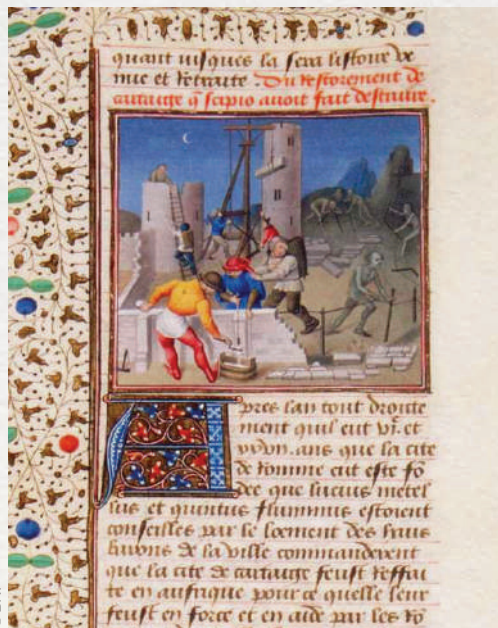 quant iusques la sera listoire ve
nue et Retraite. Du Restorement de
cartaige q̃ scipio auoit fait destruire.
Apres lan tout droite
ment quil eut vjᶜ. et
ans que la cite
de Romme eut este fõ
dee que lucius metel
lus et quintus flaminius estoient
conseilles par le loement des haus
barons de la ville commanderent
que la cite de cartaige feust Reffai
te en auffrique pour ce quelle leur
feust en force et en aide par les Rõ